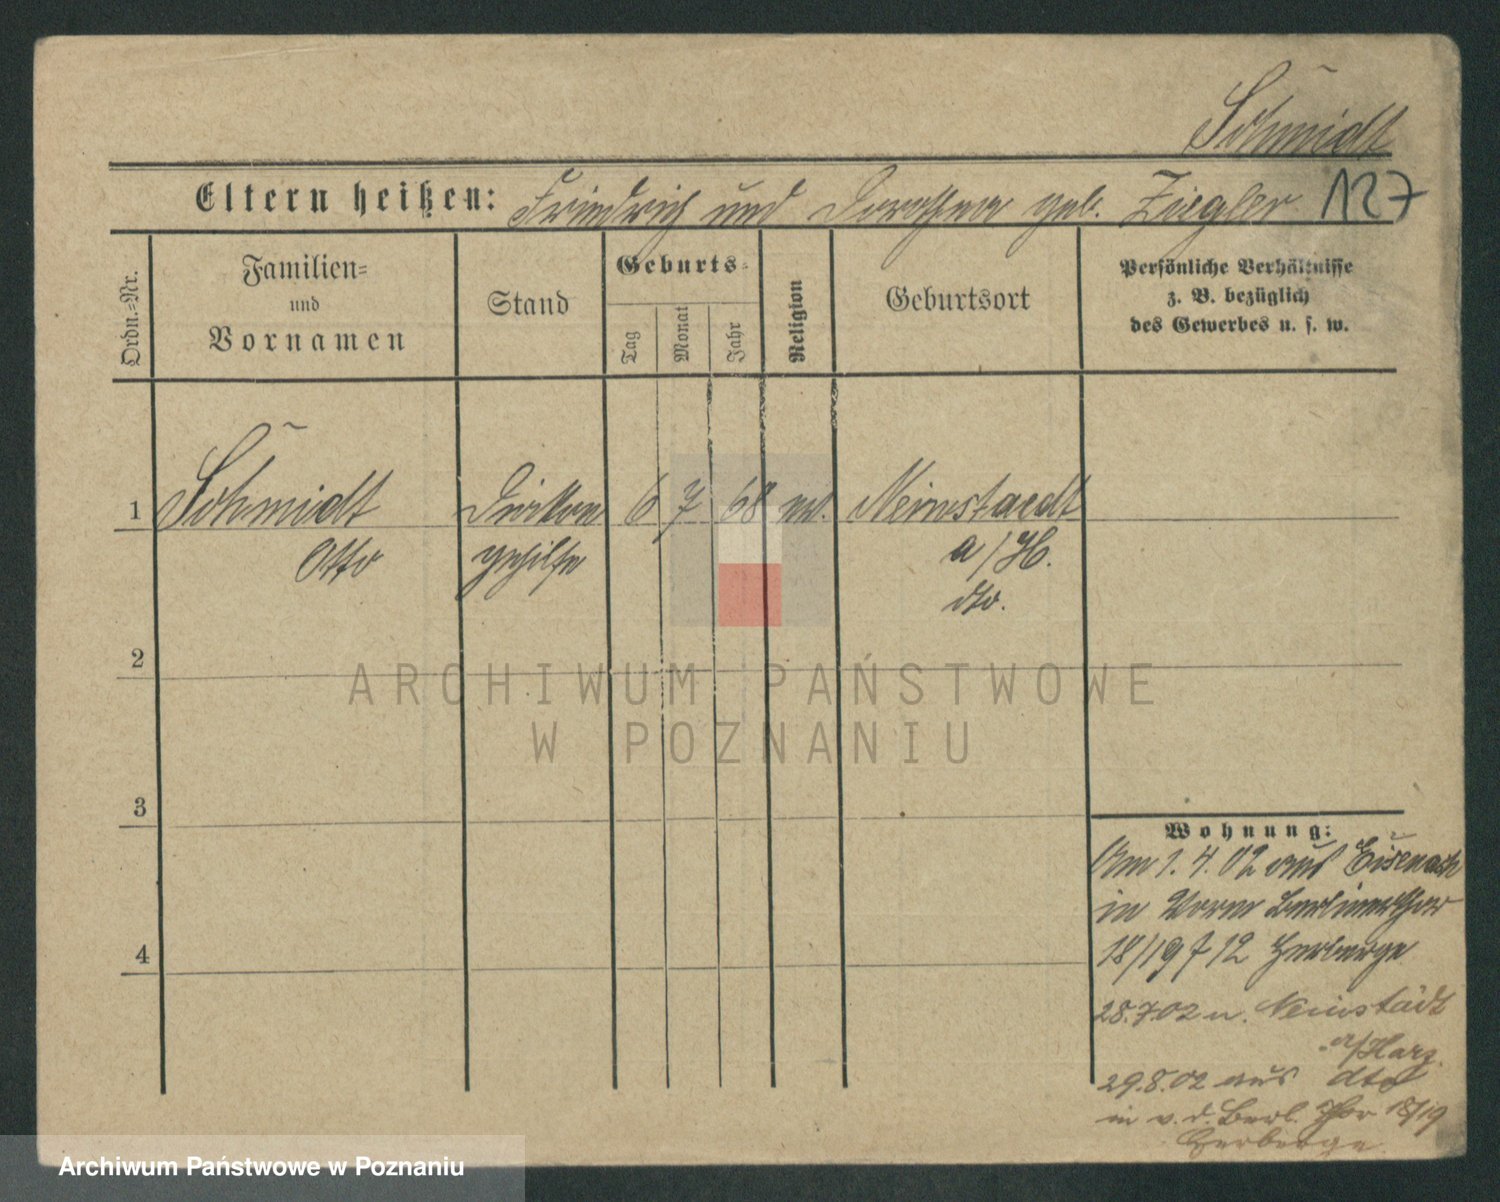 Schmidt
Eltern heißen: Friedrich und Dorothea geb. Ziegler 127
Ordn.=Nr.
Familien=
und
Vornamen
Stand
Geburts=
Tag
Monat
Jahr
Religion
Geburtsort
Persönliche Verhältnisse
z. B. bezüglich
des Gewerbes u. s. w.
1 Schmidt Diakon 6 7 68 ev. Neinstaedt
Otto gehilfe a/H.
dto.
2
3
4
Wohnung:
Am 1. 4. 02 aus Eisenach
in Vorm Berlinerthor
18/19 12 Herberge
28.7.02 n. Neinstädt
a/Harz.
29.8.02 aus dto
in v. d. Berl. Thor 18/19
Herberge
ARCHIWUM PAŃSTWOWE
W POZNANIU
Archiwum Państwowe w Poznaniu